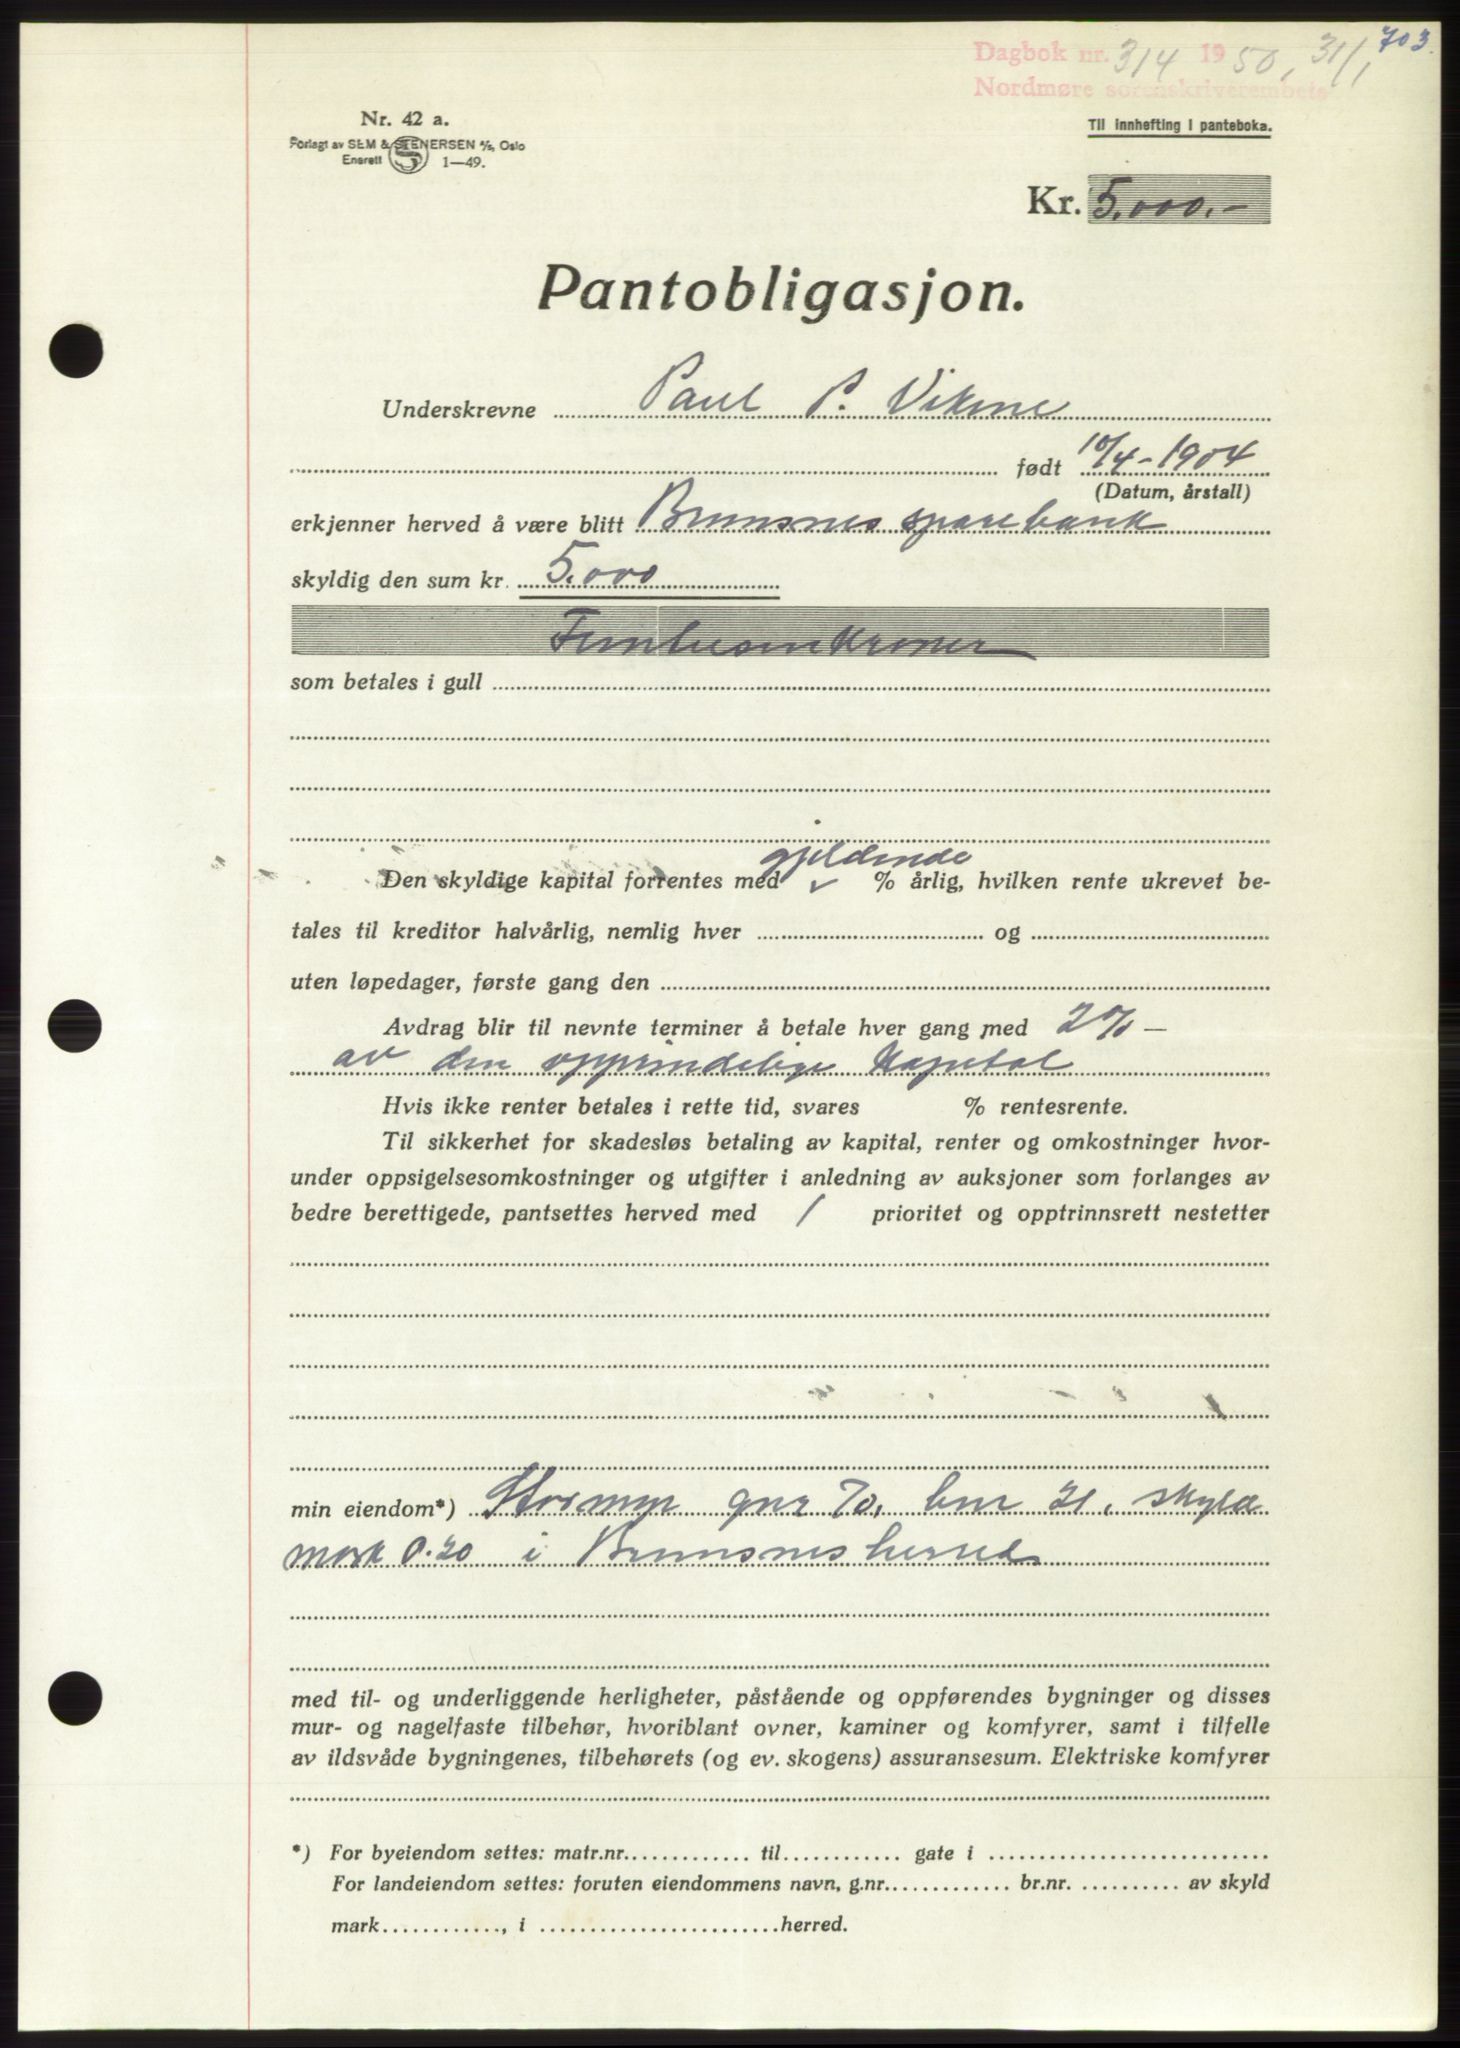 703.
Dagbok nr. 314 1950, 31/1
Nordmøre sorenskriverembete
Nr. 42 a.
Forlagt av SEM & STENERSEN A/S, Oslo
Enerett 1—49.
Til innhefting i panteboka.
Kr. 5.000.-
Pantobligasjon.
Underskrevne Paul P. Vikene
født 10/4-1904
(Datum, årstall)
erkjenner herved å være blitt Bremsnes sparebank
skyldig den sum kr. 5.000
Femtusenkroner
som betales i gull
gjeldende
Den skyldige kapital forrentes med % årlig, hvilken rente ukrevet be-
tales til kreditor halvårlig, nemlig hver og
uten løpedager, første gang den
Avdrag blir til nevnte terminer å betale hver gang med 2% —
av den opprindelige Kapital
Hvis ikke renter betales i rette tid, svares % rentesrente.
Til sikkerhet for skadesløs betaling av kapital, renter og omkostninger hvor-
under oppsigelsesomkostninger og utgifter i anledning av auksjoner som forlanges av
bedre berettigede, pantsettes herved med 1 prioritet og opptrinnsrett nestetter
min eiendom*) Stormyr gnr 70, bnr 21, skyld
mark 0.20 i Bremsnes herred.
med til- og underliggende herligheter, påstående og oppførendes bygninger og disses
mur- og nagelfaste tilbehør, hvoriblant ovner, kaminer og komfyrer, samt i tilfelle
av ildsvåde bygningenes, tilbehørets (og ev. skogens) assuransesum. Elektriske komfyrer
*) For byeiendom settes: matr.nr. til gate i
For landeiendom settes: foruten eiendommens navn, g.nr. br.nr. av skyld
mark , i herred.